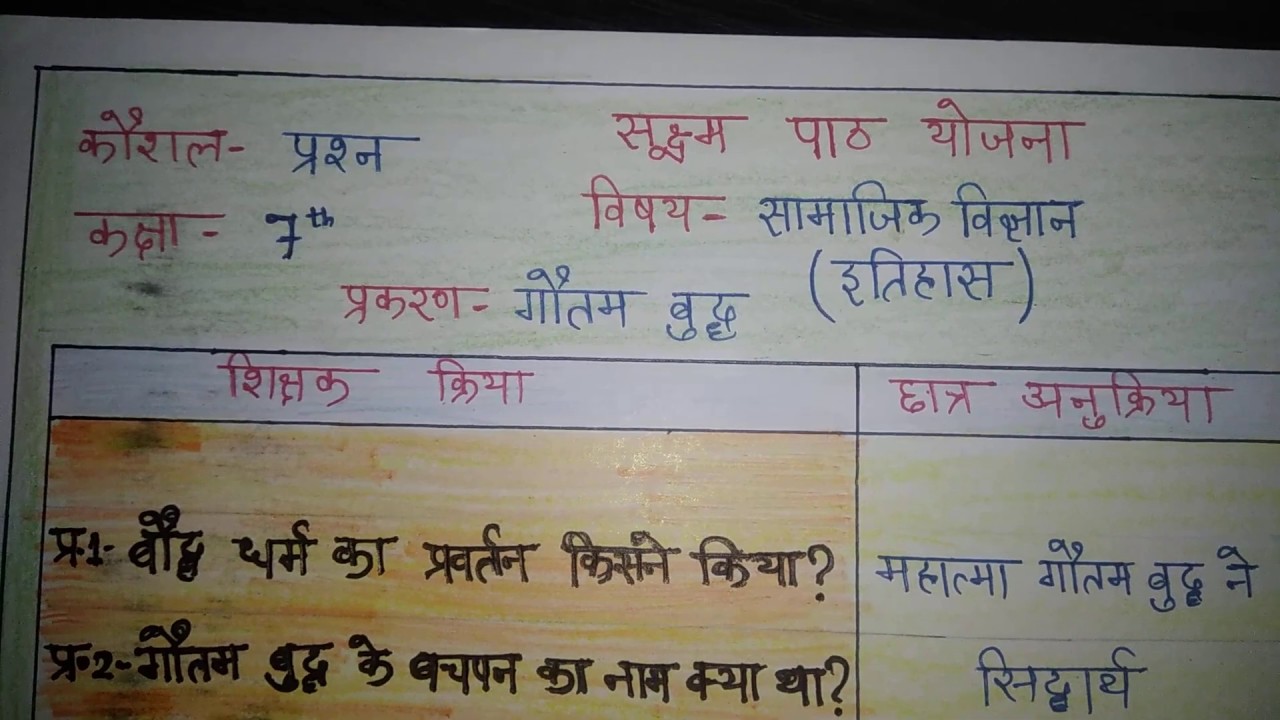 कौशल- प्रश्न सूक्ष्म पाठ योजना
कक्षा- 7th विषय- सामाजिक विज्ञान
प्रकरण- गौतम बुद्ध (इतिहास)
शिक्षक क्रिया छात्र अनुक्रिया
प्र.1- बौद्ध धर्म का प्रवर्तन किसने किया? महात्मा गौतम बुद्ध ने
प्र.2- गौतम बुद्ध के बचपन का नाम क्या था? सिद्धार्थ